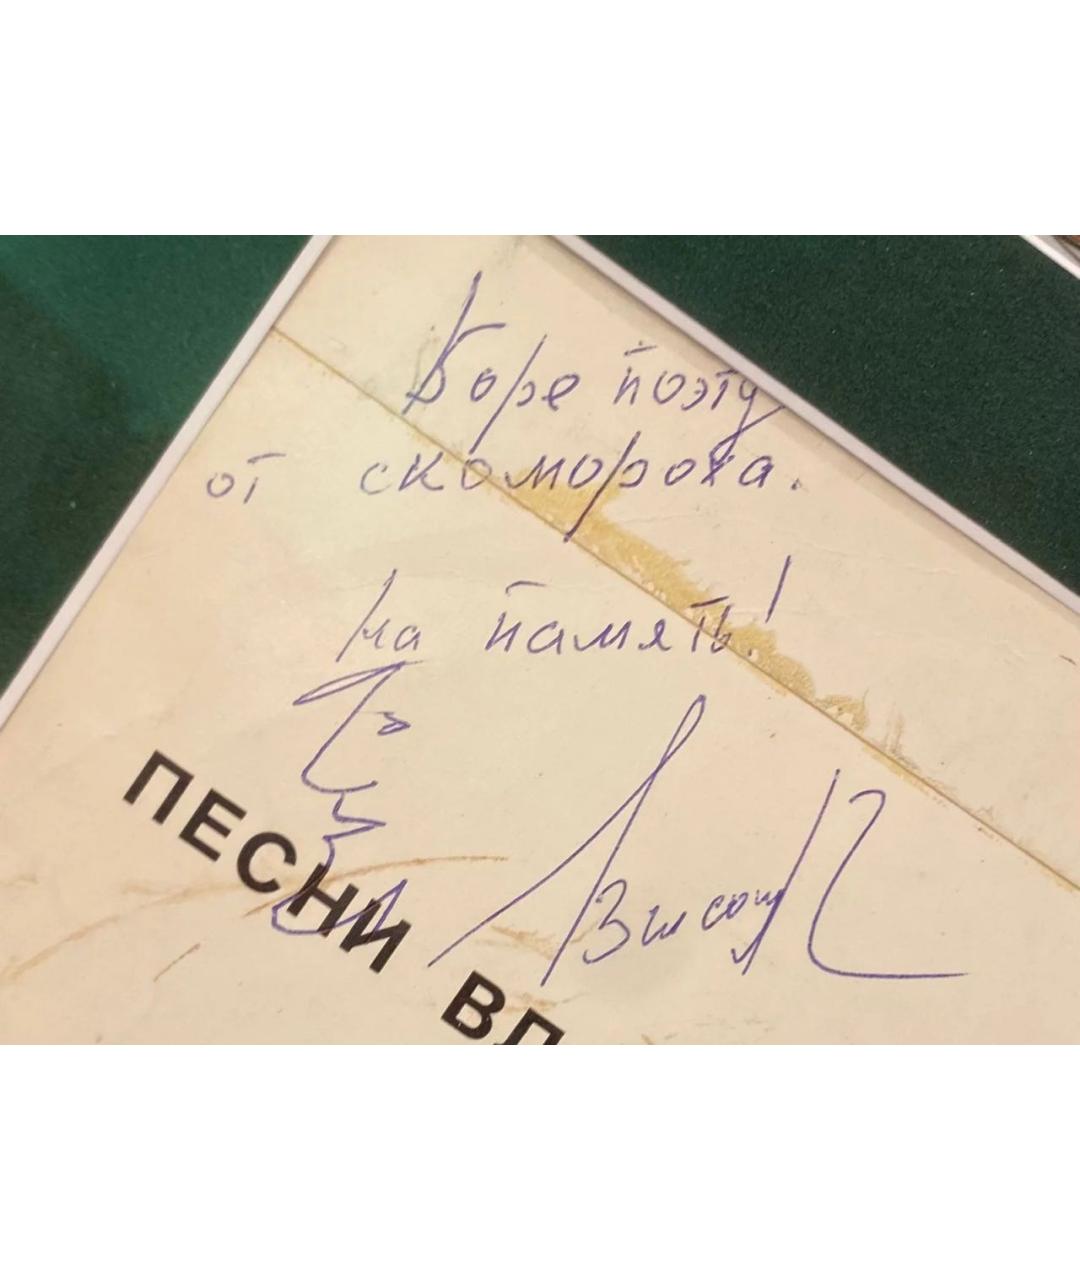 Боре поэту
от скомороха.
на память!
Высоц
ПЕСНИ ВЛ